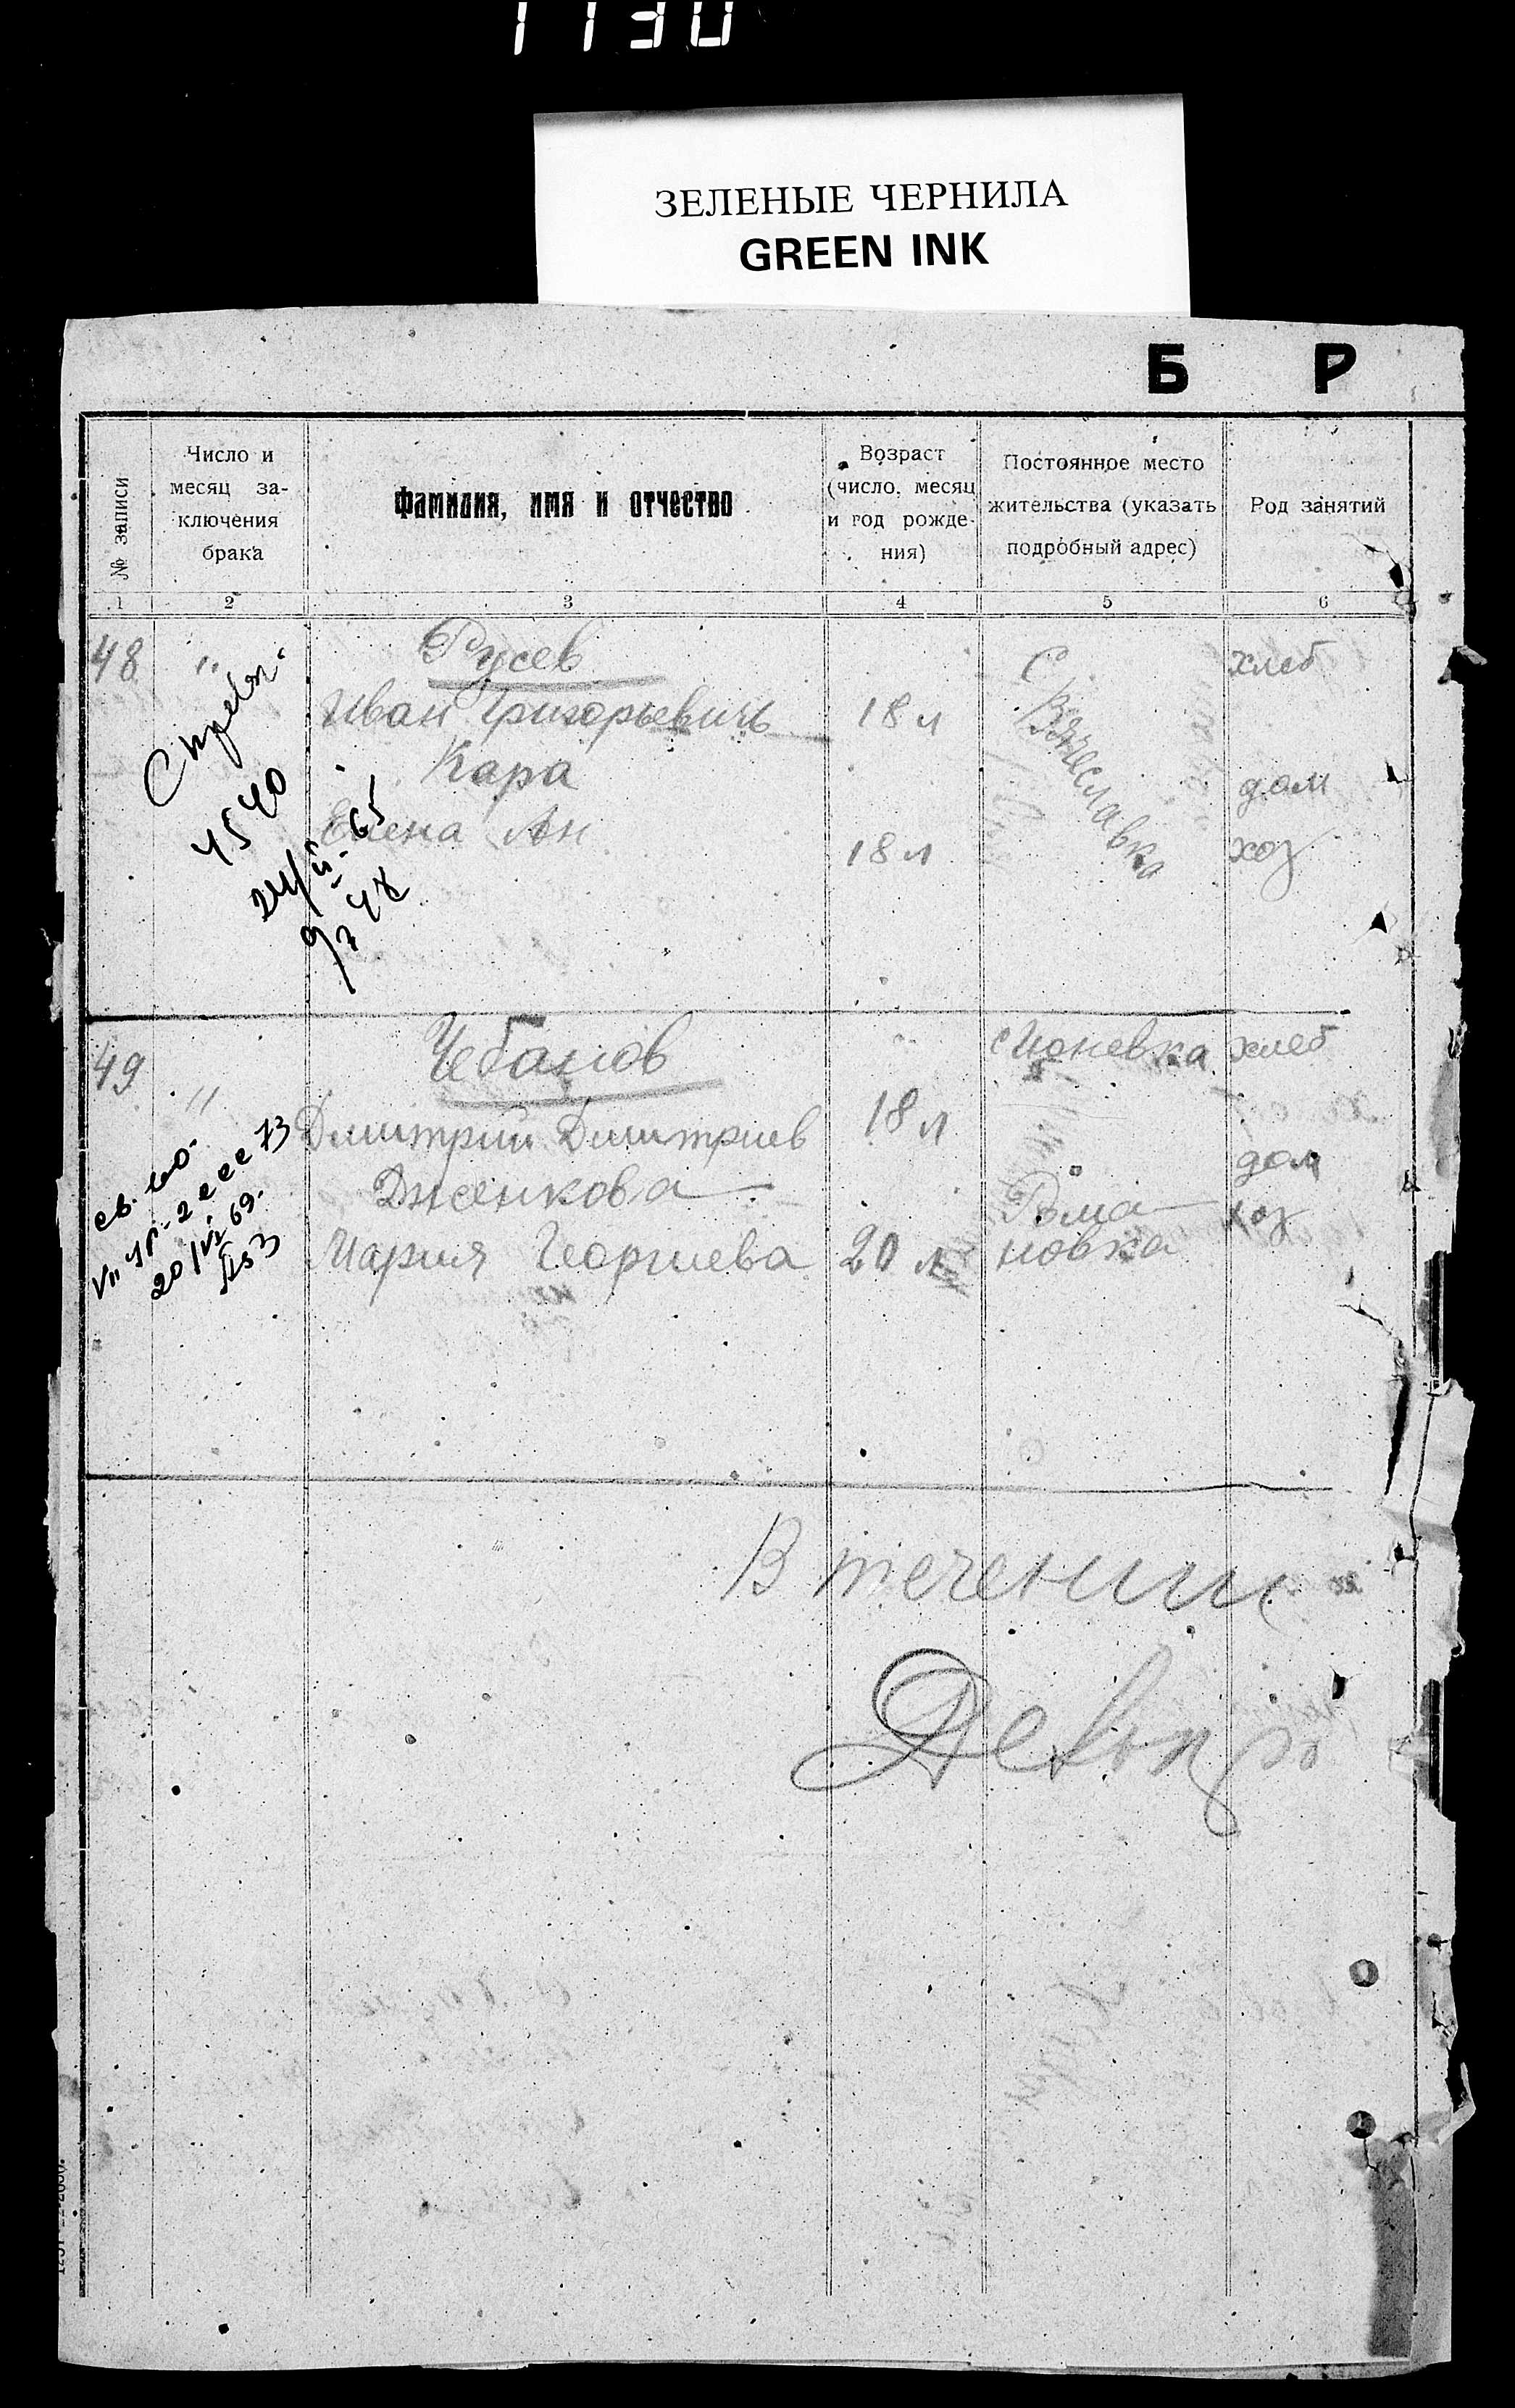 1130
ЗЕЛЕНЫЕ ЧЕРНИЛА
GREEN INK
Б Р
№ записи
Число и
месяц за-
ключения
брака
Фамилия, имя и отчество
Возраст
(число, месяц
и год рожде-
ния)
Постоянное место
жительства (указать
подробный адрес)
Род занятий
1 2 3 4 5 6
48 "
Русев
Иван Григорьевичь
Кара
Елена Ан
18 л
18 л
С Вячеславка
хлеб
дом
хоз
4540
49 "
Чебанов
Дмитрий Дмитриев
Дженкова
Мария Георгиева
18 л
20 л
Рома
новка
хлеб
дом
хоз
В течении